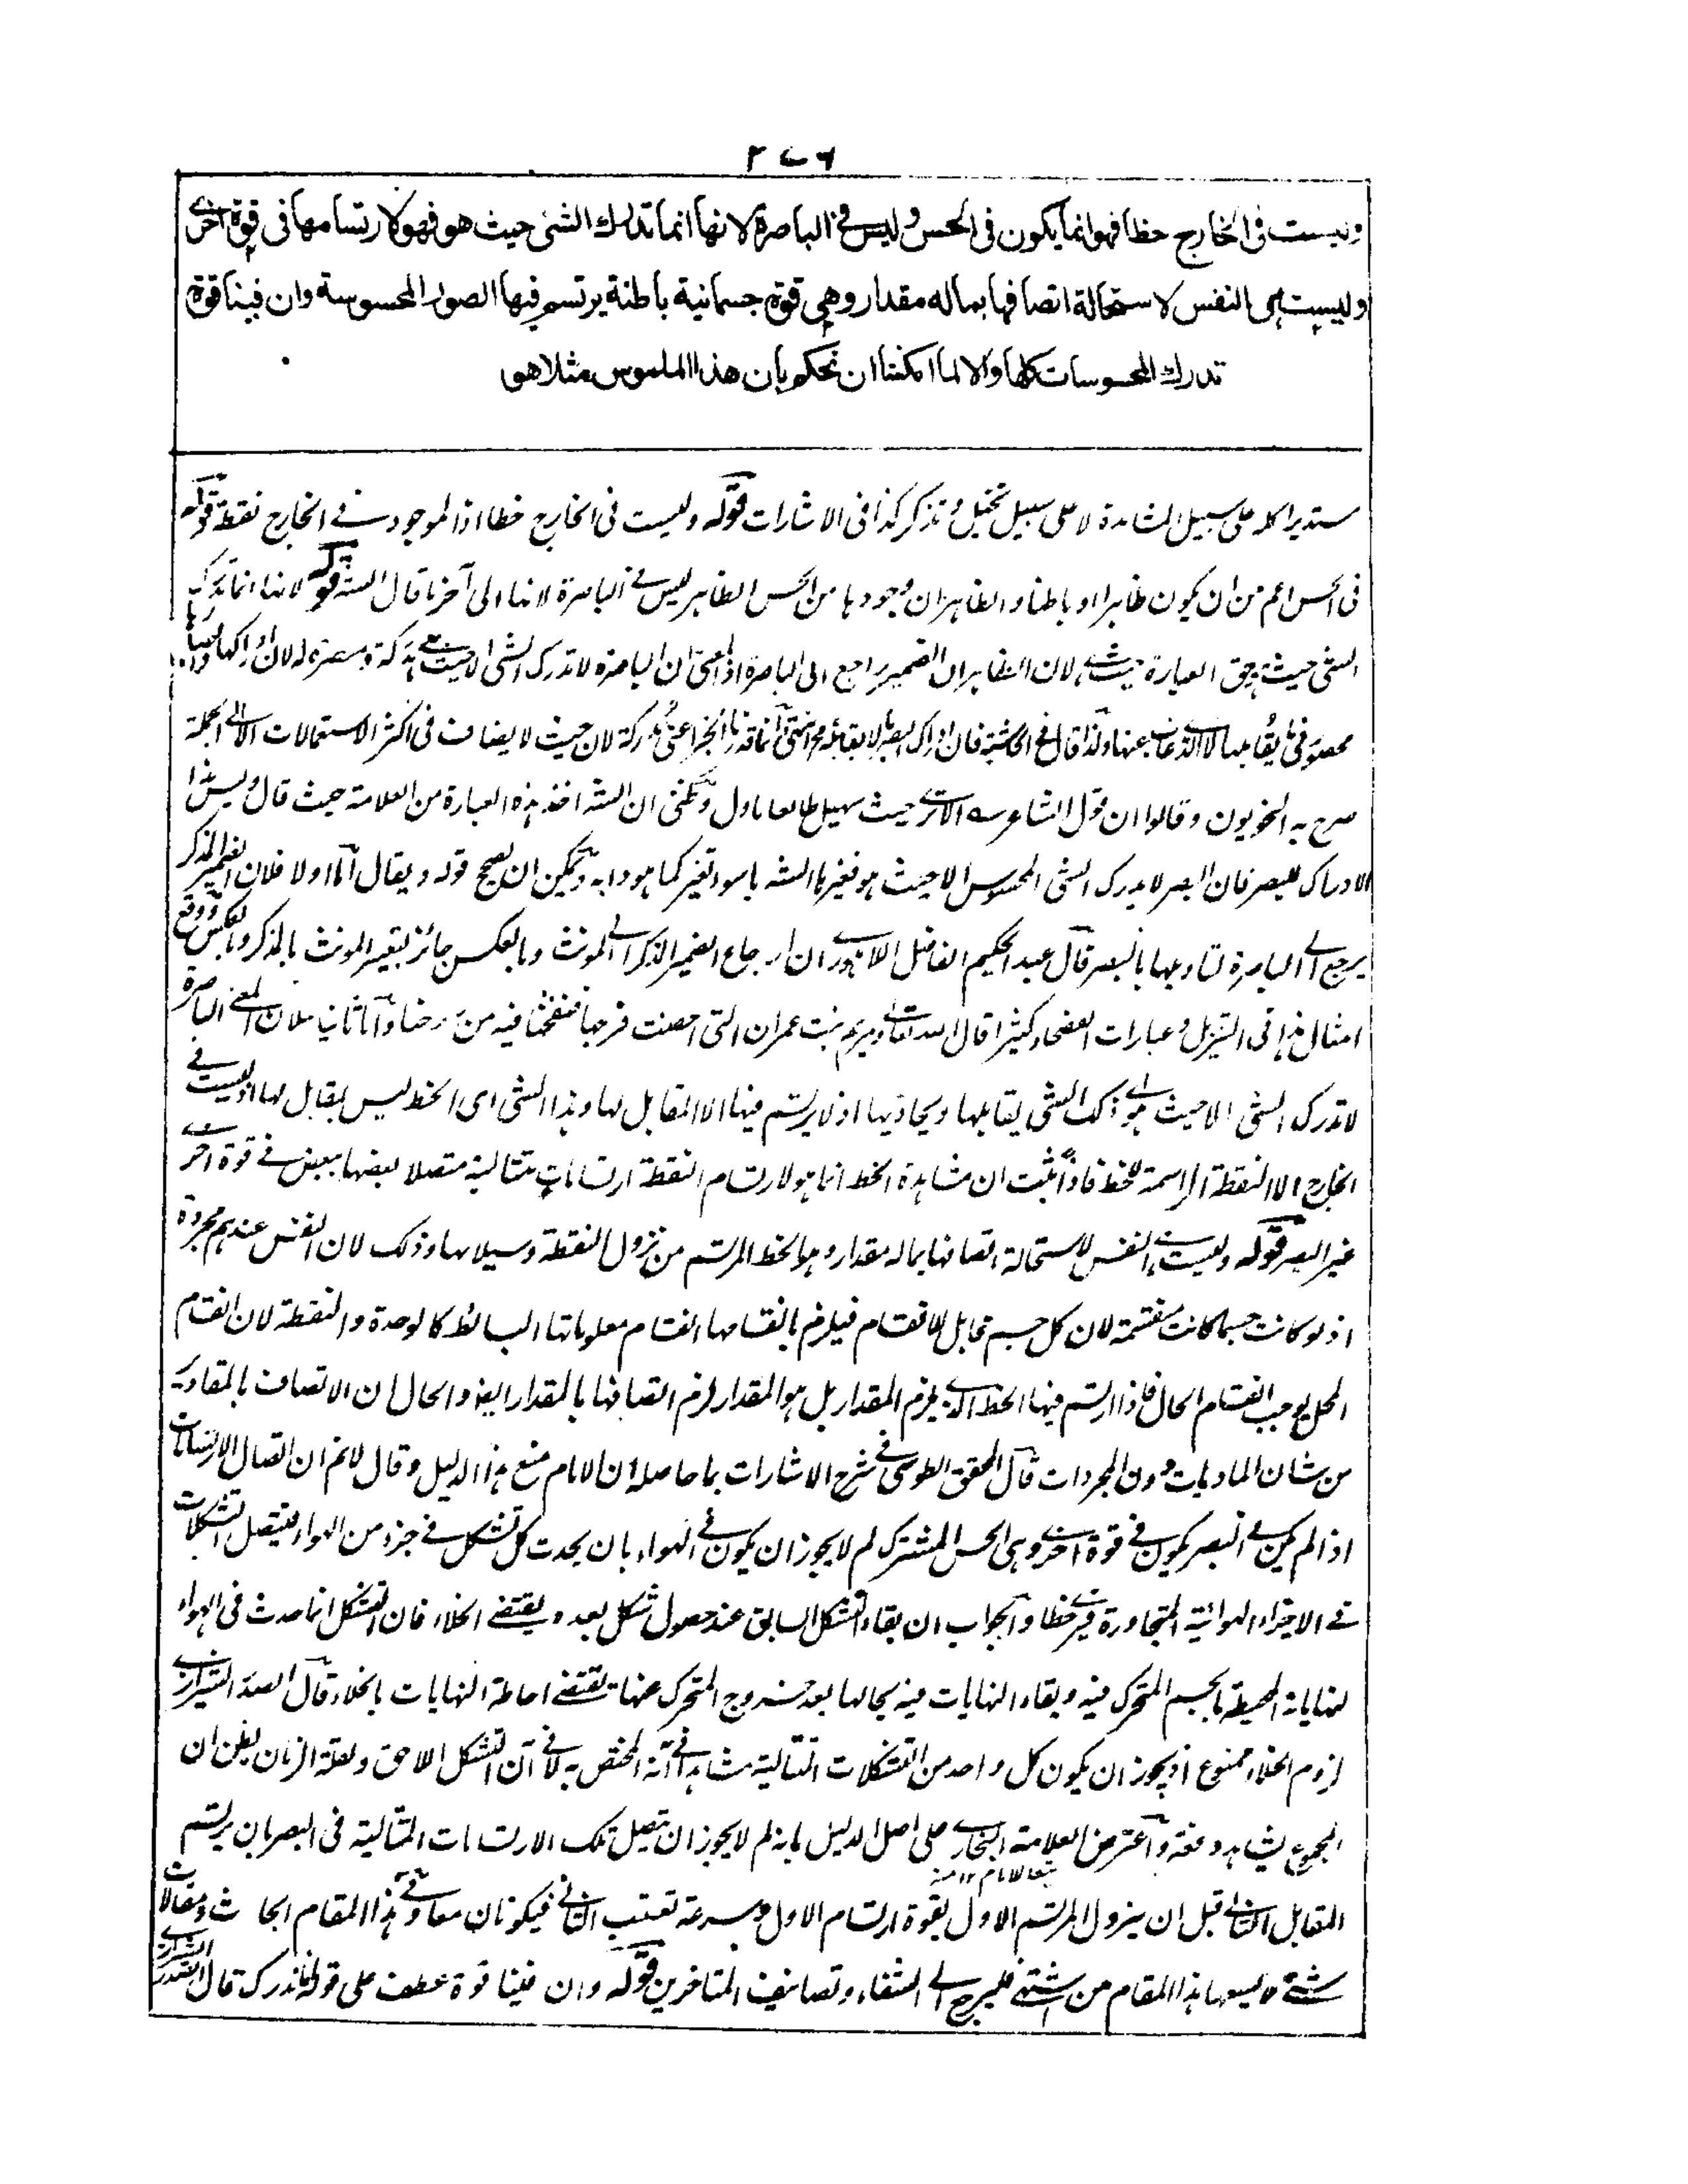 ٢٧٦
وليست فى الخارج خطا فهو انما يكون فى الحس وليس فى الباصرة لانها انما تدرك الشئ حيث هو فهو لارتسامها فى قوة اخرى
وليست هى النفس لاستحالة اتصافها بماله مقدار وهى قوة جسمانية باطنة يرتسم فيها الصور المحسوسة وان فينا قوة
تدرك المحسوسات كلها والا لما امكننا ان نحكم بان هذا الملموس مثلا هو
ستديرا كله على سبيل المشاهدة لا على سبيل تخيل وتذكر كذا فى الاشارات قوله وليست فى الخارج خطا اذ الموجود فى الخارج نقطة قوله
فى الحس اعم من ان يكون ظاهرا او باطنا والظاهر ان وجودها من الحس الظاهر ليس فى الباصرة لانها الى آخر ما قال الشه قوله لانها انما تدرك
الشئ حيث هو حق العبارة حيث هى لان الظاهر ان الضمير راجع الى الباصرة اذ المعنى ان الباصرة لا تدرك الشئ الا حيث هى مدركة له لان ادراكها
فى ما يقابلها لا الذى غاب عنها ولذا قال فى الحاشية فان ادراك البصر لما يقابله مدركة لان حيث لا يضاف فى اكثر الاستعمالات الا الى الجملة
صرح به النحويون وقالوا ان قول الشاعر ع الا ترى حيث سهيل طالعا ماول ويمكن ان الشه اخذ هذه العبارة من العلامة حيث قال وليس هذا
الادراك للبصر فان البصر لا يدرك الشئ المحسوس الا حيث هو فغيرها الشه باسوء تغير كما هو دابه ويمكن ان يصحح قوله ويقال اما اولا فلان الضمير المذكر
يرجع الى الباصرة لتاويلها بالبصر قال عبد الحكيم الفاضل اللاهورى ان ارجاع الضمير المذكر الى المونث وبالعكس جائز بتعبير المونث بالمذكر وبالعكس ووقع
امثال هذا فى التنزيل وعبارات الفصحاء كثيرا قال الله تعالى ومريم بنت عمران التى احصنت فرجها فنفخنا فيه من روحنا واما ثانيا فلان المعنى الباصرة
لا تدرك الشئ الا حيث هو اى ذلك الشئ يقابلها ويحاذيها اذ لا يرتسم فيها الا المقابل لها وهذا الشئ اى الخط ليس بمقابل لها اذ ليست فى
الخارج الا النقطة الراسمة للخط فاذا ثبت ان مشاهدة الخط انما هو لارتسام النقطة ارتسامات متتالية متصلا بعضها ببعض فى قوة اخرى
غير البصر قوله وليست هى النفس لاستحالة اتصافها بماله مقدار وهو الخط المرتسم من نزول النقطة وسيلانها وذلك لان النفس عندهم مجردة
اذ لو كانت جسما كانت منقسمة لان كل جسم قابل للانقسام فيلزم بانقسامها انقسام معلوماتها البسائط كالوحدة والنقطة لان انقسام
المحل يوجب انقسام الحال فاذا ارتسم فيها الخط الذى يلزم المقدار بل هو المقدار لزم اتصافها بالمقدار ايضا والحال ان الاتصاف بالمقادير
من شان الماديات دون المجردات قال المحقق الطوسى فى شرح الاشارات بما حاصله ان الامام منع هذا الدليل وقال لا نم ان اتصال الارتسامات
اذا لم يكن فى البصر يكون فى قوة اخرى وهى الحس المشترك لم لا يجوز ان يكون فى الهواء بان يحدث كل تشكل فى جزء من الهواء فيتصل التشكلات
فى الاجزاء الهوائية المتجاورة فيرى خطا والجواب ان بقاء التشكل السابق عند حصول شكل بعده يقتضى الخلاء فان التشكل انما حدث فى الهواء
لنهاياته المحيطة بالجسم المتحرك فيه وبقاء النهايات فيه بحالها بعد خروج المتحرك عنها يقتضى احاطة النهايات بالخلاء قال الصدر الشيرازى
لزوم الخلاء ممنوع اذ يجوز ان يكون كل واحد من التشكلات المتتالية مشاهدا فى آنه المختص به لا فى آن التشكل اللاحق ولقلة الزمان يظن ان
المجموع يشاهد دفعة واعترض العلامة البخارى على اصل الدليل بانه لم لا يجوز ان يتصل تلك الارتسامات المتتالية فى البصر بان يرتسم
تبعا للامام ١٢ منه
المقابل الثانى قبل ان يزول المرتسم الاول لقوة ارتسام الاول وسرعة تعقب الثانى فيكونان معا وفى هذا المقام ابحاث ومقالات
شتى لا يسعها هذا المقام من اشتهى فليرجع الى الشفاء وتصانيف المتاخرين قوله وان فينا قوة عطف على قوله انا ندرك قال الصدر الشيرازى